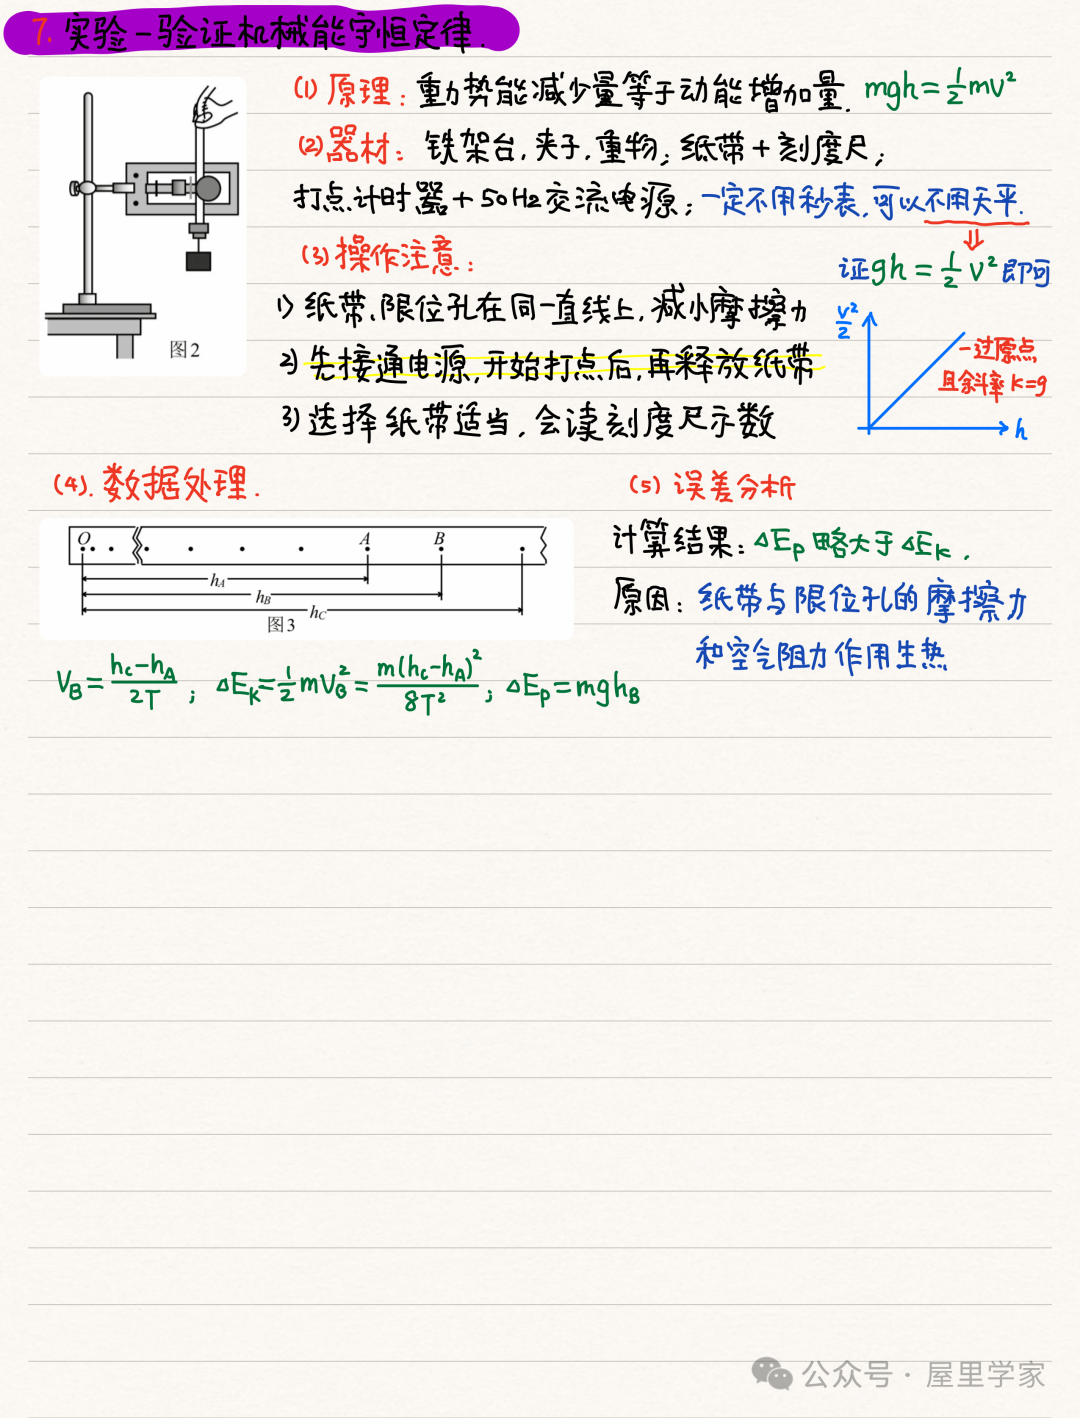 7. 实验-验证机械能守恒定律.
(1) 原理: 重力势能减少量等于动能增加量. mgh=½mv²
(2) 器材: 铁架台, 夹子, 重物; 纸带+刻度尺;
打点计时器+50Hz交流电源; 一定不用秒表, 可以不用天平.
⇓
证gh=½v²即可
(3) 操作注意:
1) 纸带、限位孔在同一直线上, 减小摩擦力
2) 先接通电源, 开始打点后, 再释放纸带
3) 选择纸带适当, 会读刻度尺示数
图2
v²/2
一过原点
且斜率k=g
h
(4). 数据处理.
O A B
hA
hB
hC
图3
VB=(hc-hA)/2T ; ΔEk=½mVB²=m(hc-hA)²/8T² ; ΔEp=mghB
(5) 误差分析
计算结果: ΔEp略大于ΔEk.
原因: 纸带与限位孔的摩擦力
和空气阻力作用生热
公众号·屋里学家